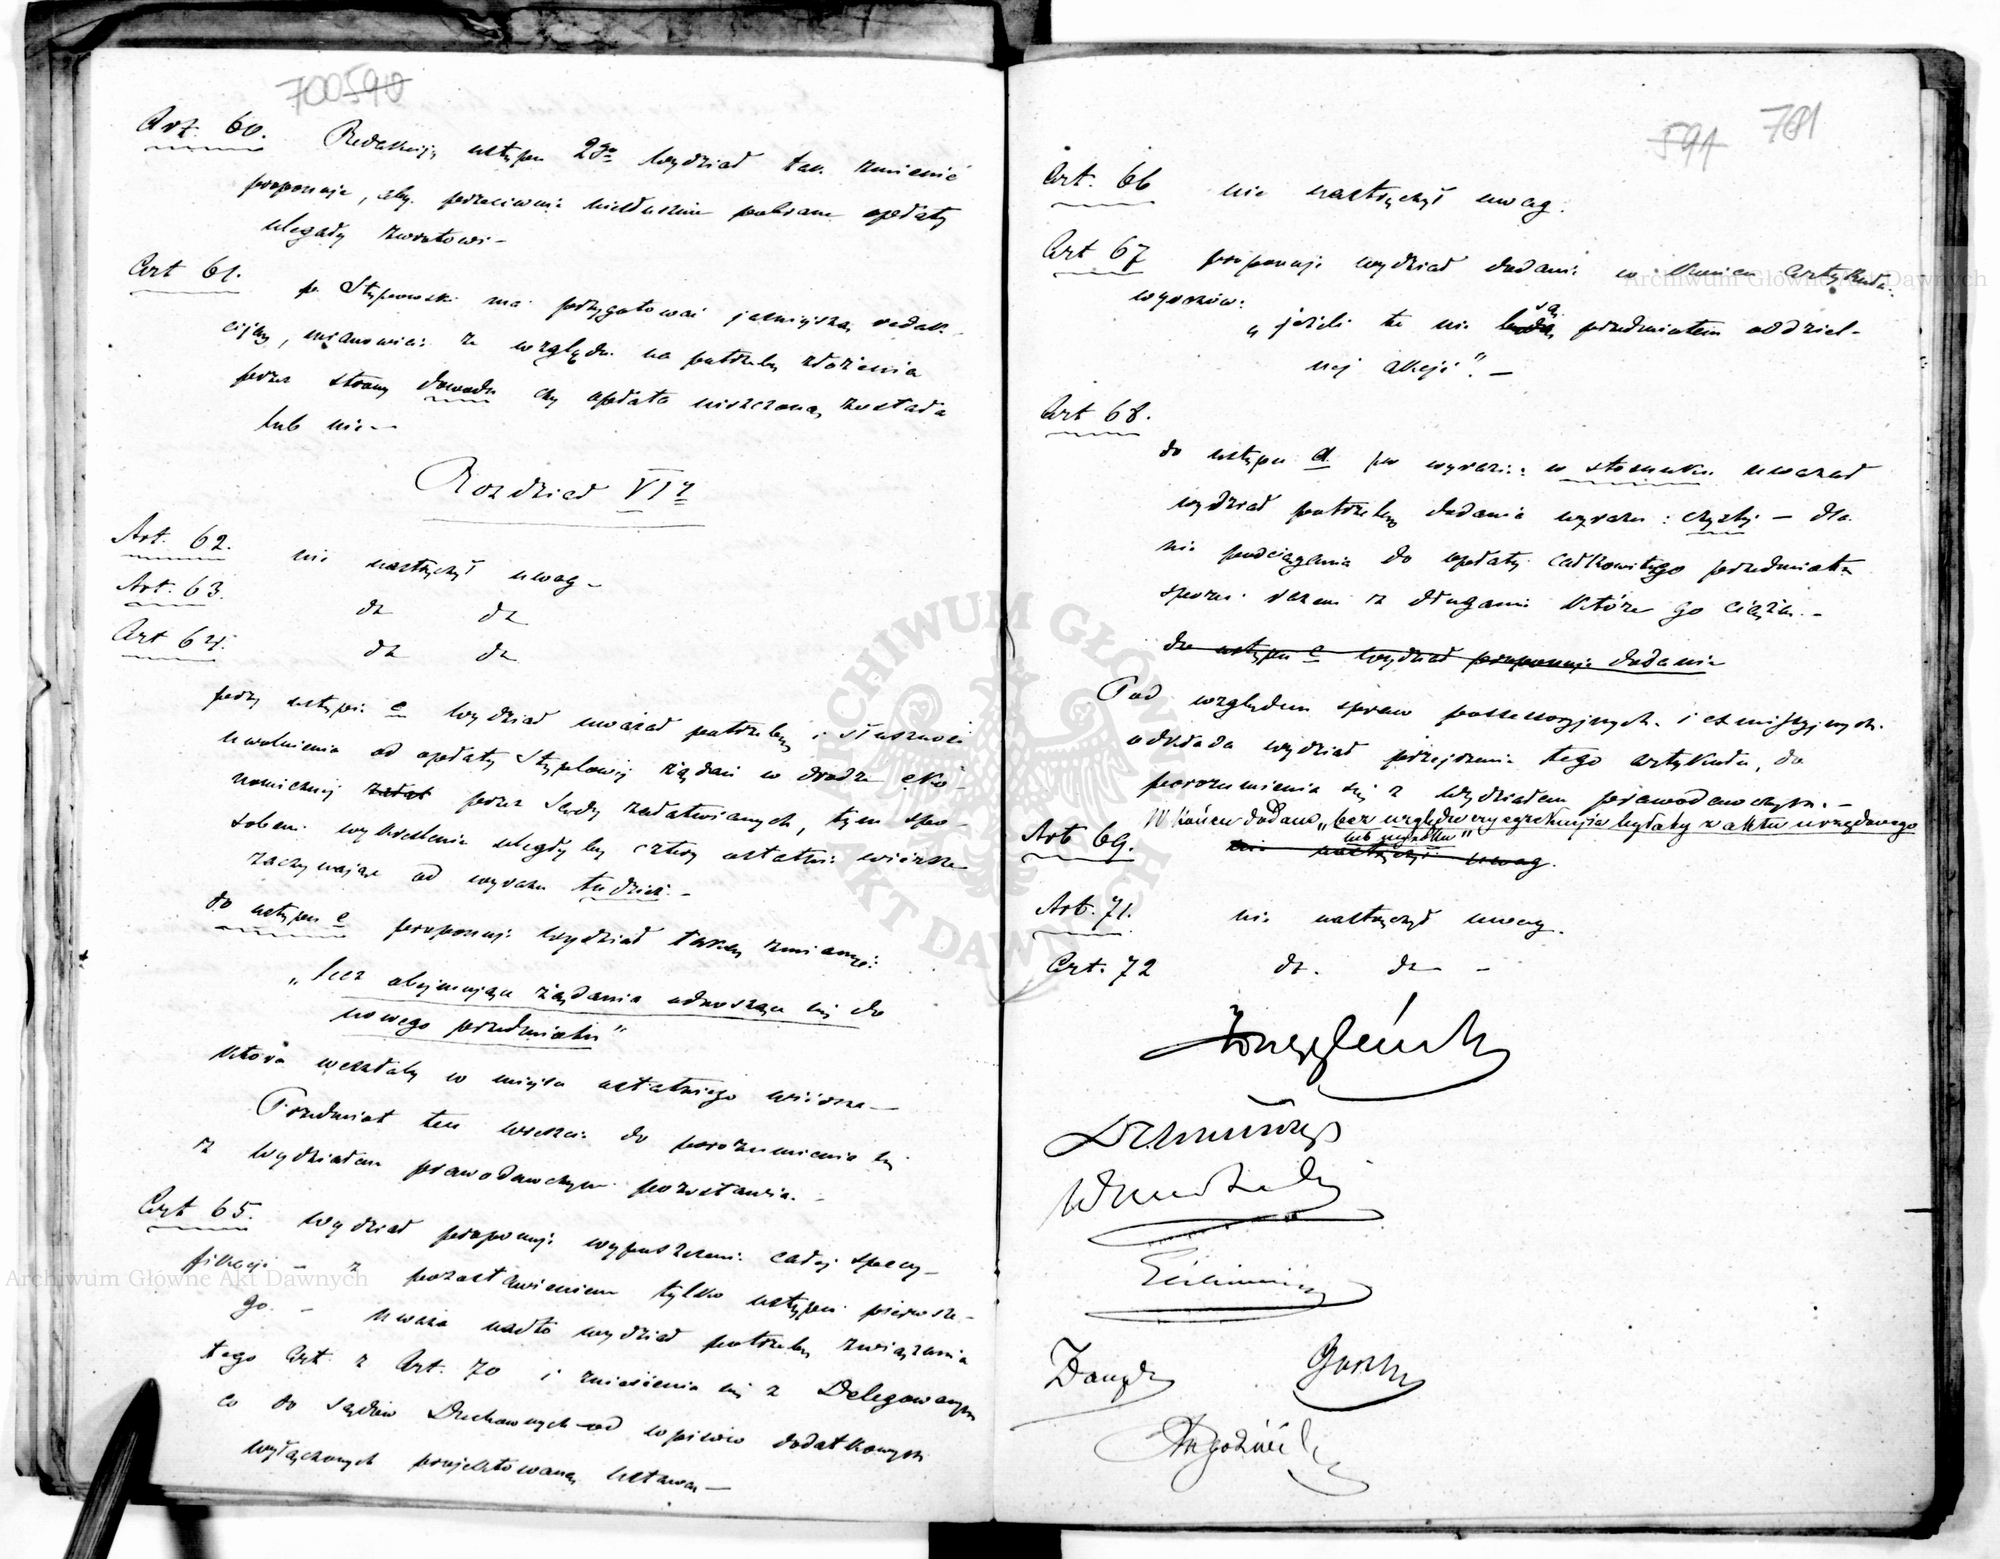 700 590
Art. 60. Redakcyję ustępu 2go Wydział tak zmienić
proponuje, aby przeciwnie niesłusznie pobrane opłaty
ulegały zwrotowi –
Art 61. p. Stępowski ma przygotować jaśniejszą redak-
cyją, mianowicie ze względu na potrzebę złożenia
przez strony dowodu czy opłata uiszczoną została
lub nie –
Rozdział VIty
Art. 62. nie nastręczył uwag –
Art. 63. dt dt
Art 64. dt dt
przy ustępie c Wydział uważał potrzebę i słuszność
uwolnienia od opłaty stęplowej żądań w drodze eko-
nomicznej przez Sądy załatwianych, tym spo-
sobem wykreśleniu uległyby cztery ostatnie wiersze
zaczynające od wyrazu tudzież –
do ustępu e proponuje Wydział taką zmianę:
„lecz obejmujące żądania odnoszące się do
nowego przedmiotu"
która weszłaby w miejsce ostatniego wiersza –
Przedmiot ten wreszcie do porozumienia się
z Wydziałem prawodawczym pozostawia. –
Art 65. Wydział proponuje wypuszczenie całej specy-
fikacji – z pozostawieniem tylko ustępu pierwsze-
go. – uważa nadto wydział potrzebę związania
tego Art. z Art. 70 i zniesienia się z Delegowanym
co do Sądów Duchownych od wpisów dodatkowych
wyłączonych projektowaną Ustawą –
591 701
Art. 66 nie nastręczył uwag.
Art 67 proponuje wydział dodanie w końcu Artykułu
wyrazów:
„jeżeli te nie są przedmiotem oddziel-
nej akcji". –
Art 68.
do ustępu d. po wyrazie: w stosunku uważał
wydział potrzebę dodania wyrazu: czystej – dla
nie pociągania do opłaty całkowitego przedmiotu
sporu razem z długami które go ciążą. –
do ustępu e Wydział proponuje dodanie
Pod względem spraw possessoryjnych i eksmisyjnych
odkłada wydział przejrzenie tego artykułu, do
porozumienia się z Wydziałem prawodawczym. –
W końcu dodano „bez względu czy egzekucyja byłaby z aktu urzędowego
lub wyroku"
Art 69. nie nastręczył uwag.
Art. 71. nie nastręczył uwag.
Art. 72 dt. dt –